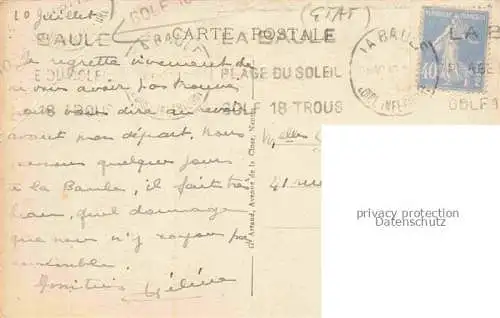 10 Juillet
(ETAT)
CARTE POSTALE
LA BAULE
PLAGE DU SOLEIL
GOLF 18 TROUS
LA BAULE
LOIRE INFERIEURE
40
BAULE
18 TROUS
LA B
PLAGE
GOLF 1
Je regrette vivement de
ne vous avoir pas trouvée
pour vous dire au revoir
avant mon départ. Nous
passons quelques jours
à la Baule, il fait très
beau, quel dommage
que vous n'y soyez pas
ensemble.
Amitiés Hélène
Melles
41 rue
Artaud, Avenue de la Close, Nantes
privacy protection
Datenschutz